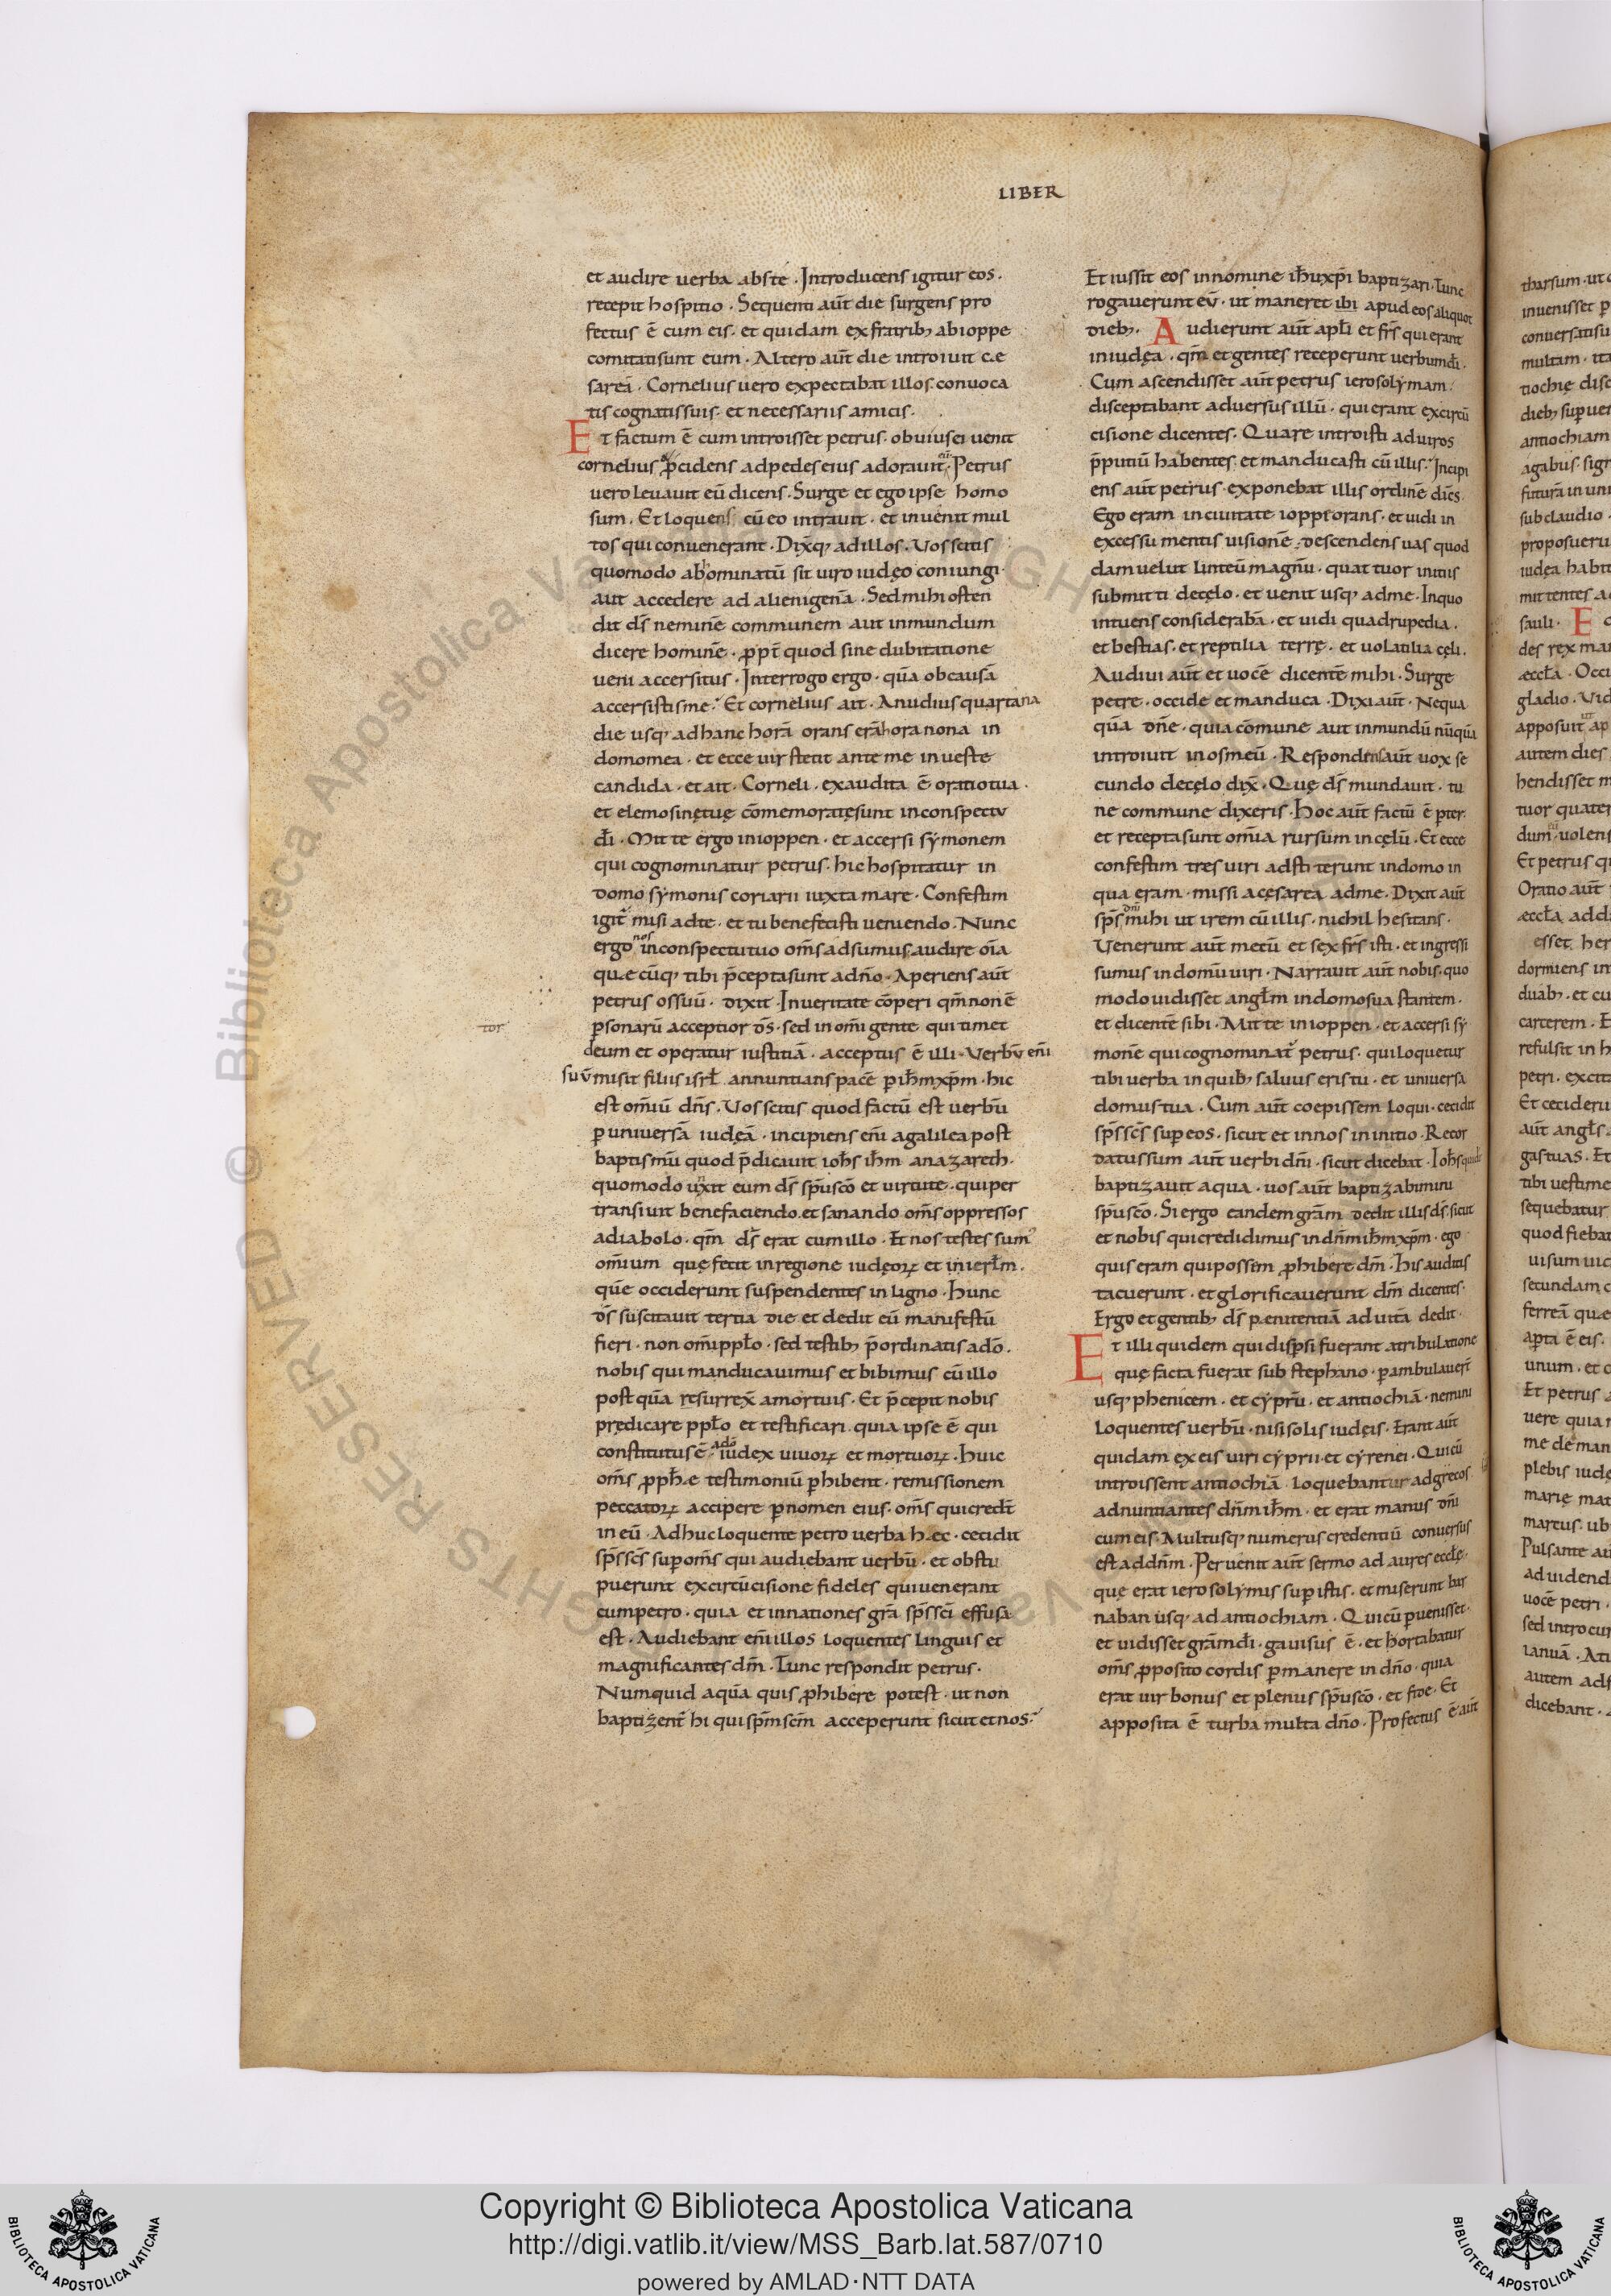 LIBER
et audire uerba abs te · Introducens igitur eos ·
recepit hospitio · Sequenti aūt die surgens pro
fectus ē cum eis · et quidam ex fratribꝫ ab ioppe
comitati sunt eum · Altero aūt die introiuit ce
sareā · Cornelius uero expectabat illos · conuoca
tis cognatis suis · et necessariis amicis ·
Et factum ē cum introisset petrus · obuius ei uenit
cornelius p̄cidens ad pedes eius adorauit eū · Petrus
uero leuauit eū dicens · Surge et ego ipse homo
sum · Et loquens cū eo intrauit · et inuenit mul
tos qui conuenerant · Dix̄qꝫ ad illos · Vos scitis
quomodo abhominatū sit uiro iudęo coniungi ·
aut accedere ad alienigenā · Sed mihi osten
dit d̄s neminē communem aut inmundum
dicere hominē · ꝓpt̄ quod sine dubitatione
ueni accersitus · Interrogo ergo · quā ob causā
accersistis me · Et cornelius ait · A nudius quartana
die usqꝫ ad hanc horā orans erā hora nona in
domo mea · et ecce uir stetit ante me in ueste
candida · et ait · Corneli · exaudita ē oratio tua ·
et elemosinę tuę cōmemoratę sunt in conspectu
dī · Mitte ergo in ioppen · et accersi sẏmonem
qui cognominatur petrus · hic hospitatur in
domo sẏmonis coriarii iuxta mare · Confestim
igit̄ misi ad te · et tu benefecisti ueniendo · Nunc
ergo nos in conspectu tuo om̄s adsumus audire oīa
quecūqꝫ tibi p̄cepta sunt a dn̄o · Aperiens aūt
petrus os suū · dixit · In ueritate cōperi qm̄ non ē
tor
ꝑsonarū acceptior d̄s · sed in om̄i gente qui timet
deum et operatur iustitiā · acceptus ē illi · Verbū enī
suū misit filiis isrł annuntians pacē ꝑ ih̄m xp̄m · hic
est om̄iū dn̄s · Vos scitis quod factū est uerbū
ꝑ uniuersā iudęā · incipiens enī a galilea post
baptismū quod p̄dicauit ioh̄s ih̄m a nazareth ·
quomodo unxit eum d̄s sp̄u scō et uirtute · qui per
transiuit benefaciendo et sanando om̄s oppressos
a diabolo · qm̄ d̄s erat cum illo · Et nos testes sum
om̄ium quę fecit in regione iudęoꝝ et in ierłm ·
quē occiderunt suspendentes in ligno · Hunc
d̄s suscitauit tertia die et dedit eū manifestū
fieri · non om̄i ppło · sed testibꝫ p̄ordinatis a dō ·
nobis qui manducauimus et bibimus cū illo
postquā resurrex̄ a mortuis · Et p̄cepit nobis
prędicare ppło et testificari quia ipse ē qui
constitutus ē a dō iudex uiuoꝝ et mortuoꝝ · Huic
om̄s ꝓph̄e testimoniū ꝑhibent · remissionem
peccatoꝝ accipere ꝑ nomen eius · om̄s qui credt̄
in eū · Adhuc loquente petro uerba hec · cecidit
sp̄s sc̄s suꝑ om̄s qui audiebant uerbū · et obstu
puerunt ex circūcisione fideles qui uenerant
cum petro · quia et in nationes gr̄a sp̄s scī effusa
est · Audiebant enī illos loquentes linguis et
magnificantes dm̄ · Tunc respondit petrus ·
Numquid aquā quis ꝓhibere potest · ut non
baptizent̄ hi qui sp̄m scm̄ acceperunt sicut et nos ·
Et iussit eos in nomine ih̄u xp̄i baptizari · Tunc
rogauerunt eū · ut maneret ibi apud eos aliquot
diebꝫ · Audierunt aūt apłi et fr̄s qui erant
in iudęa · qm̄ et gentes receperunt uerbum dī ·
Cum ascendisset aūt petrus ierosolẏmam ·
disceptabant aduersus illū · qui erant ex circū
cisione dicentes · Quare introisti ad uiros
p̄putiū habentes · et manducasti cū illis · Incipi
ens aūt petrus · exponebat illis ordinē dic̄s ·
Ego eram in ciuitate ioppe orans · et uidi in
excessu mentis uisionē · descendens uas quod
dam uelut linteū magnū · quattuor initiis
submitti de cęlo · et uenit usqꝫ ad me · In quo
intuens considerabā · et uidi quadrupedia ·
et bestias · et reptilia terrę · et uolatilia cęli ·
Audiui aūt et uocē dicentē mihi · Surge
petre · occide et manduca · Dixi aūt · Nequa
quā dn̄e · quia cōmune aut inmundū nūquā
introiuit in os meū · Respondens aūt uox se
cundo de cęlo dix̄ · Quę d̄s mundauit · tu
ne commune dixeris · Hoc aūt factū ē ꝑ ter ·
et recepta sunt om̄ia rursum in cęlū · Et ecce
confestim tres uiri adstiterunt in domo in
qua eram · missi a cęsarea ad me · Dixit aūt
sp̄s dn̄i mihi ut irem cū illis · nichil hesitans ·
Venerunt aūt mecū et sex fr̄s isti · et ingressi
sumus in domū uiri · Narrauit aūt nobis · quo
modo uidisset angłm in domo sua stantem ·
et dicentē sibi · Mitte in ioppen · et accersi sẏ
monē qui cognominat̄ petrus · qui loquetur
tibi uerba in quibꝫ saluus eris tu · et uniuersa
domus tua · Cum aūt coepissem loqui · cecidit
sp̄s sc̄s suꝑ eos · sicut et in nos in initio · Recor
datus sum aūt uerbi dn̄i · sicut dicebat · Ioh̄s quidē
baptizauit aqua · uos aūt baptizabimini
sp̄u scō · Si ergo eandem grām dedit illis d̄s · sicut
et nobis qui credidimus in dn̄m ih̄m xp̄m · ego
quis eram qui possem ꝓhibere dm̄ · His auditis
tacuerunt · et glorificauerunt dm̄ dicentes ·
Ergo et gentibꝫ d̄s penitentiā ad uitā dedit ·
Et illi quidem qui disꝑsi fuerant a tribulatione
que facta fuerat sub stephano · ꝑambulauer̄
usqꝫ phenicem · et cẏprū · et antiochiā · nemini
loquentes uerbū · nisi solis iudęis · Erant aūt
quidam ex eis uiri cẏprii · et cẏrenei · Qui cū
introissent antiochiā loquebantur ad grecos
adnuntiantes dn̄m ih̄m · et erat manus dn̄i
cum eis · Multusqꝫ numerus credentiū conuersus
est ad dn̄m · Peruenit aūt sermo ad aures eccłę ·
quę erat ierosolẏmis suꝑ istis · et miserunt bar
naban usqꝫ ad antiochiam · Qui cū ꝑuenisset ·
et uidisset grām dī · gauisus ē · et hortabatur
om̄s ꝓposito cordis ꝑmanere in dn̄o · quia
erat uir bonus et plenus sp̄u scō · et fide · Et
apposita ē turba multa dn̄o · Profectus ē aūt
tharsum · ut
inuenisset
multam · ita
antiochiam
agabus · sig
futurā in uni
sub claudio ·
proposueru
iudęa habit
mittentes a
sauli · E
des rex ma
gladio · Vid
autem dies
hendisset m
tuor quater
dum uolens
Et petrus q
Oratio aūt
esset her
dormiens in
duabꝫ · et cu
carcerem · E
refulsit in h
petri · excita
Et ceciderū
aūt angłs
gas tuas · Et
tibi uestime
sequebatur
quod fiebat
uisum uid
secundam c
ferreā que
aꝑta ē eis ·
unum · et c
Et petrus
uere quia
me de man
plebis iudę
marię mat
marcus · ub
Pulsante aū
ad uidend
uocē petri ·
sed intro cur
ianuā · At i
autem ads
dicebant ·
© Biblioteca Apostolica Vaticana
ALL RIGHTS RESERVED
Copyright © Biblioteca Apostolica Vaticana
http://digi.vatlib.it/view/MSS_Barb.lat.587/0710
powered by AMLAD·NTT DATA
BIBLIOTECA APOSTOLICA VATICANA
BIBLIOTECA APOSTOLICA VATICANA